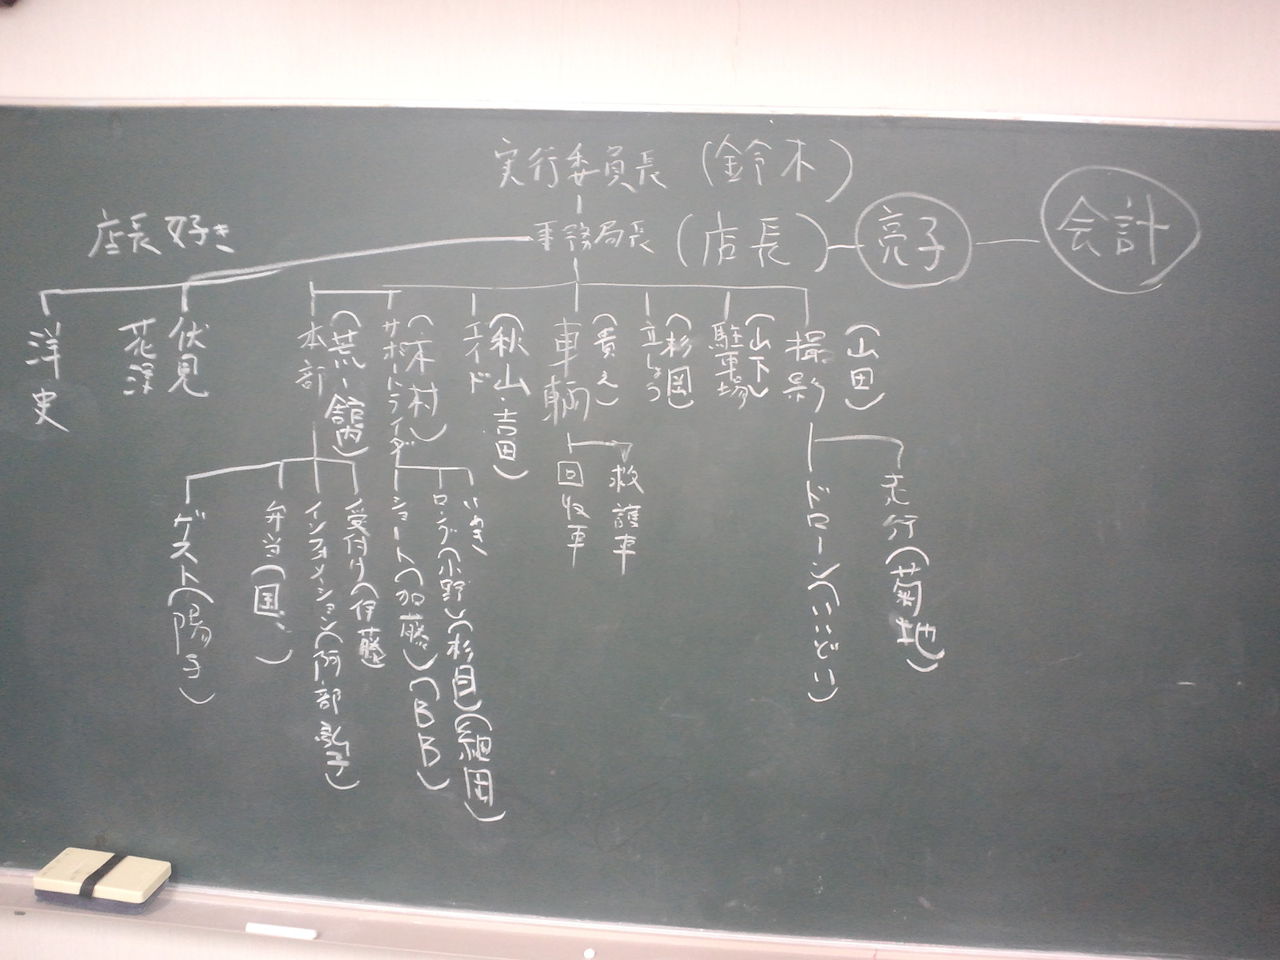 実行委員長 (鈴木)
事務局長 (店長) 亮子 会計
店長好き
洋史
伏見
花深
本部
(荒川・舘内)
サポートライダー
(木村)
エイド
(秋山・吉田)
車輌
(貴え)
立しょう
(杉岡)
駐車場
(山下)
撮影
(山田)
ゲスト(陽子)
弁当(国、)
インフォメーション(阿部
受付け(伊藤)
ショート(加藤)(BB)
ロング(小野)(杉目)(細田)
回収車
救護車
ドローン(いいどい)
走行(菊地)